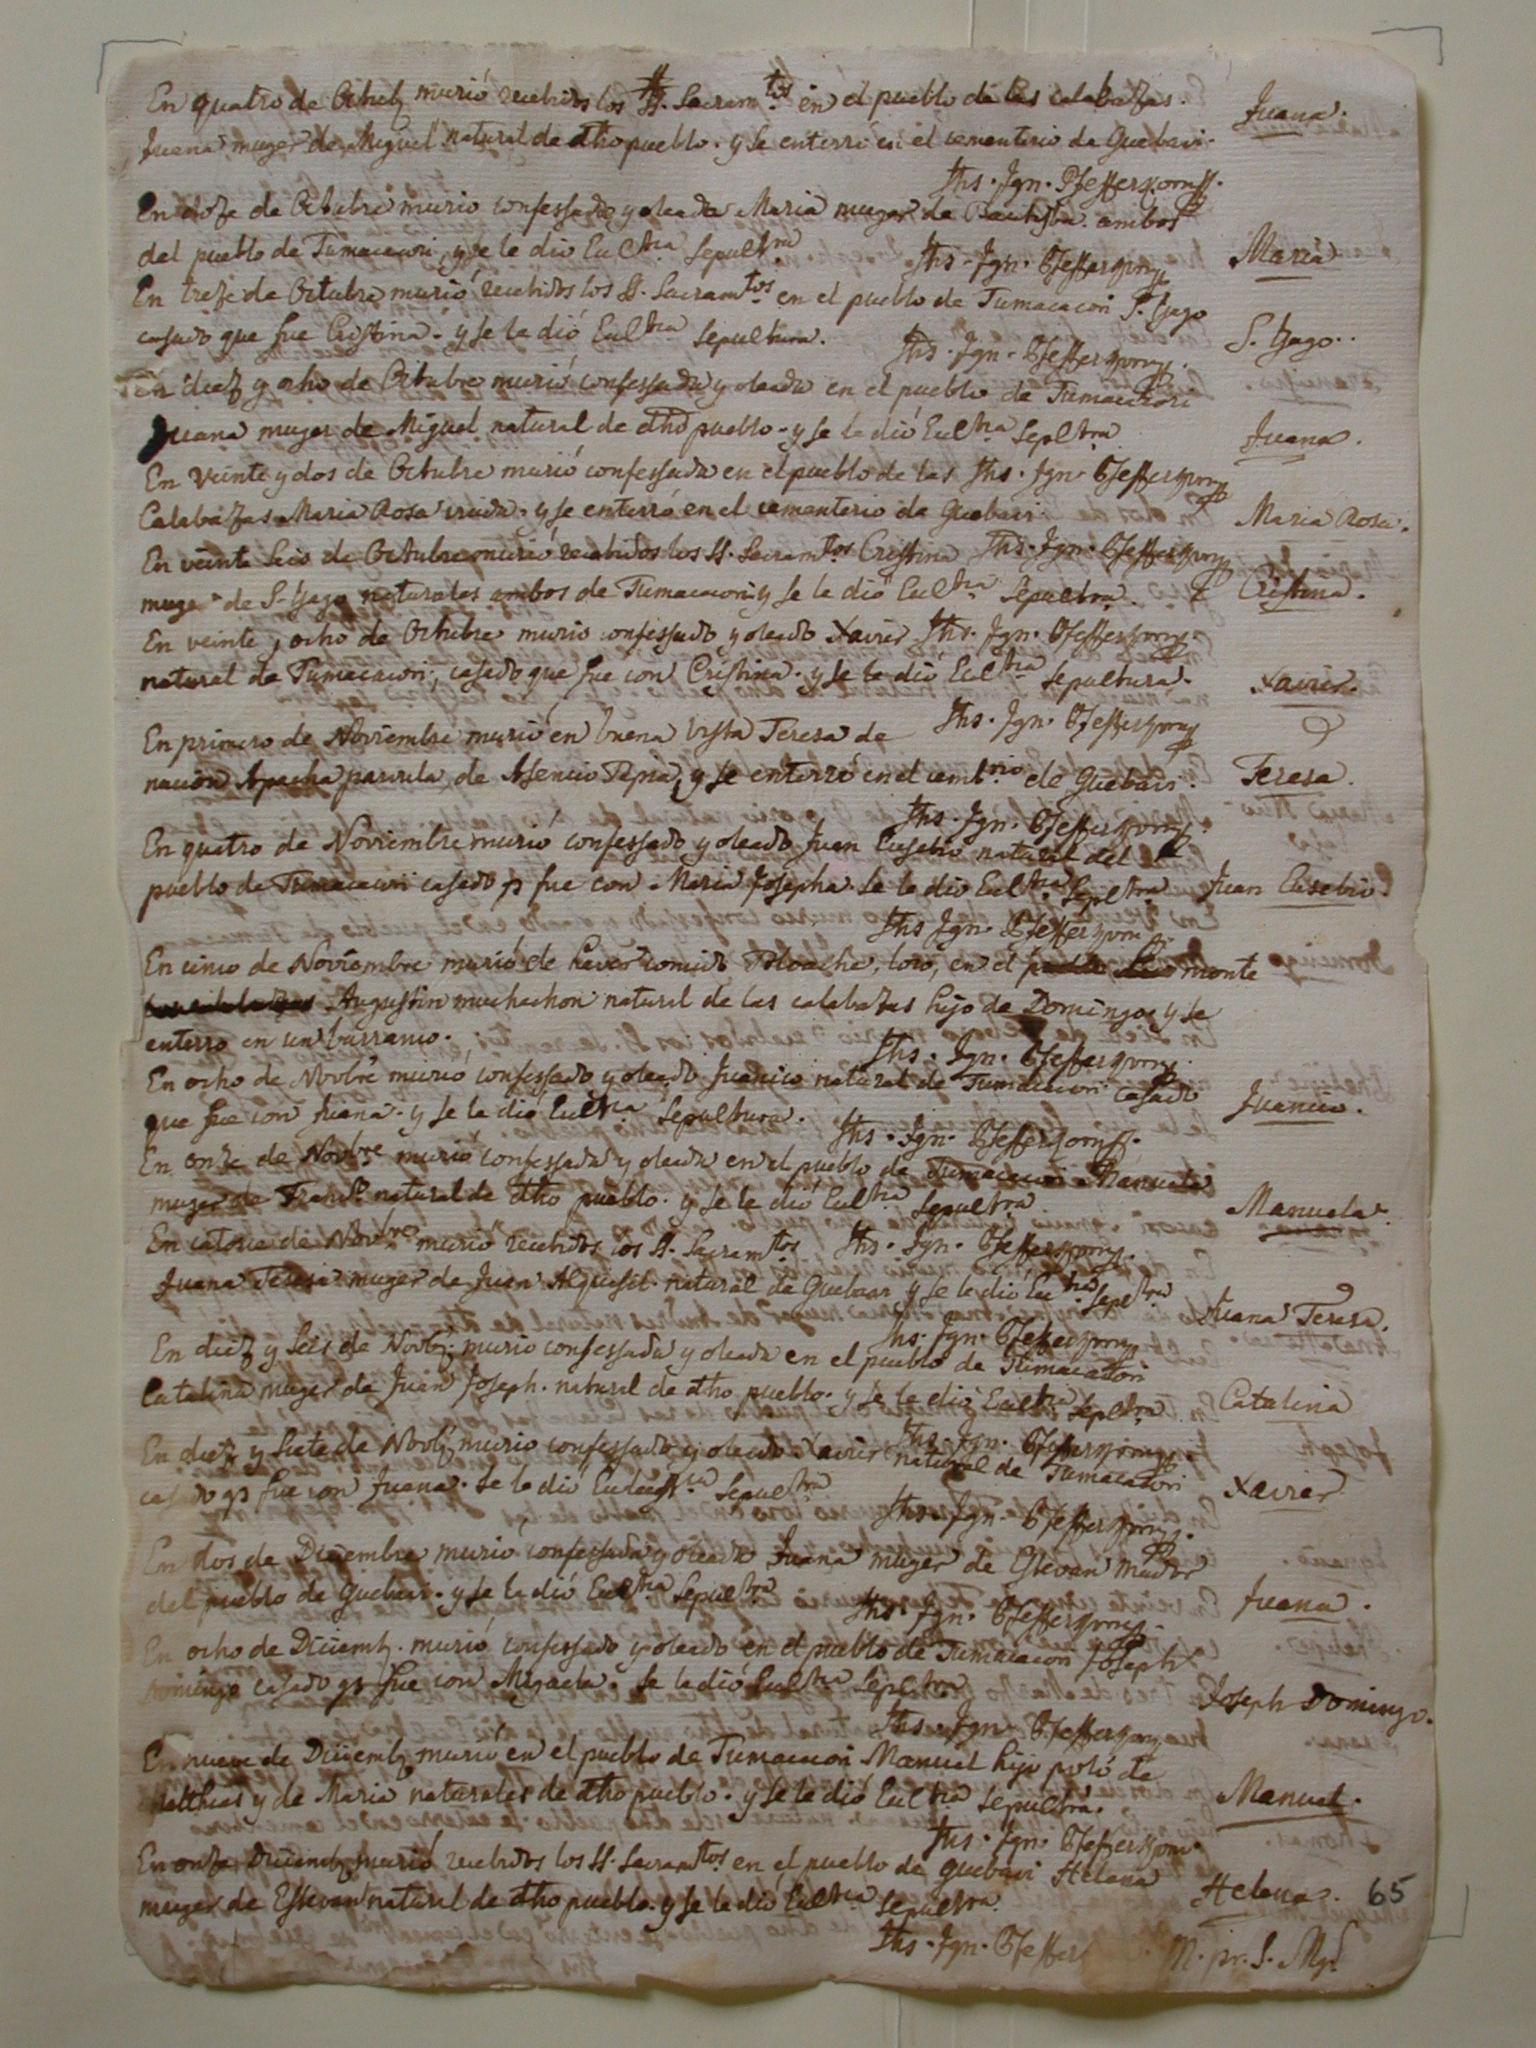 En quatro de Octub. murió recebidos los SS. Sacram.tos en el pueblo de las calabazas.
Juana muger de Miguel natural de dho pueblo. y se enterró en el cementerio de Guebavi.
Juana.
Ihs. Ign. Pfefferkorn
En doze de Octubre murio confessada y oleada Maria muger de Bautista. ambos
del pueblo de Tumacacori, y se le dio Eccl.tica Sepult.ra
Ihs. Ign. Pfefferkorn
Maria.
En treze de Octubre murió recebidos los SS. Sacram.tos en el pueblo de Tumacacori S. Yago
casado que fue Cristina. y se le dió Eccl.tica Sepultura.
S. Yago.
Ihs. Ign. Pfefferkorn
En diez y ocho de Octubre murió confessada y oleada en el pueblo de Tumacacori
Juana muger de Miguel natural de dho pueblo. y se le dió Eccl.tica Sepult.ra
Juana.
Ihs. Ign. Pfefferkorn
En veinte y dos de Octubre murió confessada en el pueblo de las
Calabazas Maria Rosa viuda. y se enterró en el cementerio de Guebavi.
Maria Rosa.
Ihs. Ign. Pfefferkorn
En veinte seis de Octubre murió recebidos los SS. Sacram.tos Cristina
muger de S. Yago naturales ambos de Tumacacori y se le dió Eccl.tica Sepultra.
Cristina.
Ihs. Ign. Pfefferkorn
En veinte y ocho de Octubre murio confessado y oleado Xavier
natural de Tumacacori, casado que fue con Cristina. y se le dió Eccl.tica Sepultura.
Xavier.
Ihs. Ign. Pfefferkorn
En primero de Noviembre murió en buena vista Teresa de
nacion Apacha parvula de Asencio Tapia, y se enterró en el cemt.rio de Guebavi.
Teresa.
Ihs. Ign. Pfefferkorn
En quatro de Noviembre murió confessado y oleado Juan Eusebio natural del
pueblo de Tumacacori casado q fue con Maria Josepha. Se le dio Eccl.tica Sepult.ra
Juan Eusebio.
Ihs Ign. Pfefferkorn
En cinco de Noviembre murió de haver comido Toloache, loco, en el monte
Augustin muchachon natural de las calabazas hijo de Domingo. y se
enterró en un barranco.
Ihs. Ign. Pfefferkorn
En ocho de Novbre murió confessado y oleado Juanico natural de Tumacacori casado
que fue con Juana. y se le dió Eccl.tica Sepultura.
Juanico.
Ihs. Ign. Pfefferkorn
En onze de Novbre murió confessada y oleada en el pueblo de Tumacacori Manuela
muger de Fran.co natural de dho pueblo. y se le dió Eccl.tica Sepult.ra
Manuela.
Ihs. Ign. Pfefferkorn
En catorce de Novbre murió recebidos los SS. Sacram.tos
Juana Teresa muger de Juan natural de Guebavi y se le dió Ecc.tica Sepult.ra
Juana Teresa.
Ihs. Ign. Pfefferkorn
En diez y seis de Novb. murió confessada y oleada en el pueblo de Tumacacori
Catalina muger de Juan Joseph. natural de dho pueblo. y se le dió Eccl.tica Sepult.ra
Catalina
Ihs. Ign. Pfefferkorn
En diez y siete de Novb. murio confessado y oleado Xavier natural de Tumacacori
casado q fue con Juana. se le dió Sepult.ra
Xavier
Ihs. Ign. Pfefferkorn
En dos de Diciembre murió confessada y oleada Juana muger de Estevan Mador
del pueblo de Guebavi. y se le dió Eccl.tica Sepult.ra
Juana.
Ihs. Ign. Pfefferkorn
En ocho de Diciemb. murió confessado y oleado en el pueblo de Tumacacori Joseph
Domingo casado q fue con Micaela. Se le dió Eccl.tica Sepult.ra
Joseph Domingo.
Ihs. Ign. Pfefferkorn
En nueve de Diciemb. murió en el pueblo de Tumacacori Manuel hijo de
Matthias y de Maria naturales de dho pueblo. y se le dió Eccl.tica Sepultra.
Manuel.
Ihs. Ign. Pfefferkorn
En onze Diciemb. murió recebidos los SS. Sacram.tos en el pueblo de Guebavi Helena
muger de Estevan natural de dho pueblo. y se le dió Eccl.tica Sepult.ra
Helena.
65
Ihs. Ign. Pfeffer
M. pr. S. Mgl